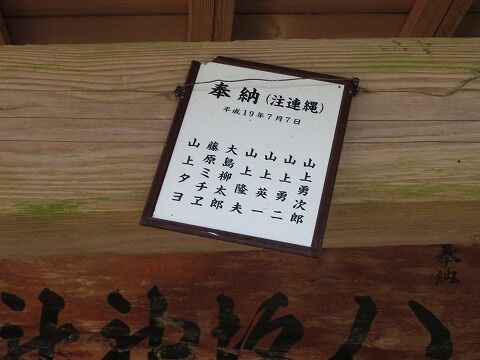 奉納(注連縄)
平成19年7月7日
山上勇次郎
山上勇二
山上英一
山上隆夫
大島柳太郎
藤原ミチヱ
山上タヨ
奉納